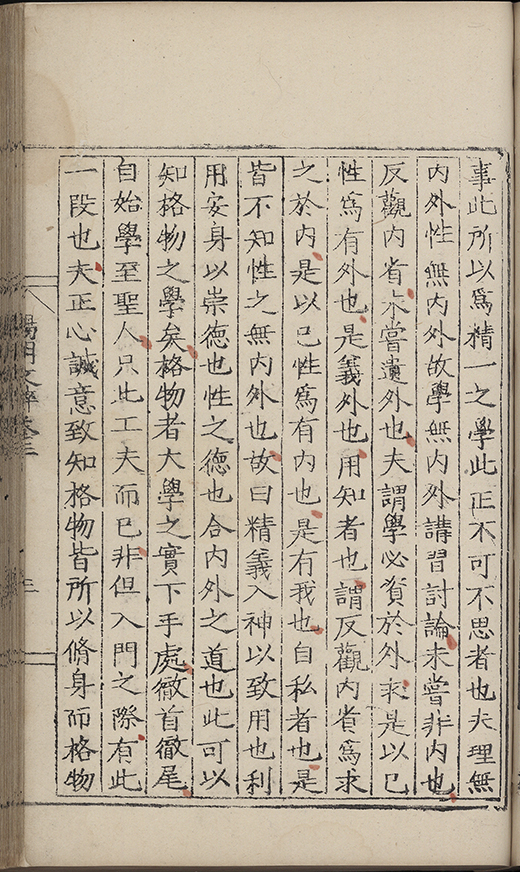 事此所以爲精一之學此正不可不思者也夫理無
內外性無內外故學無內外講習討論未嘗非內也
反觀內省未嘗遺外也夫謂學必資於外求是以己
性爲有外也是義外也用知者也謂反觀內省爲求
之於內是以己性爲有內也是有我也自私者也是
皆不知性之無內外也故曰精義入神以致用也利
用安身以崇德也性之德也合內外之道也此可以
知格物之學矣格物者大學之實下手處徹首徹尾
自始學至聖人只此工夫而已非但入門之際有此
一段也夫正心誠意致知格物皆所以脩身而格物
陽明文粹卷三
三